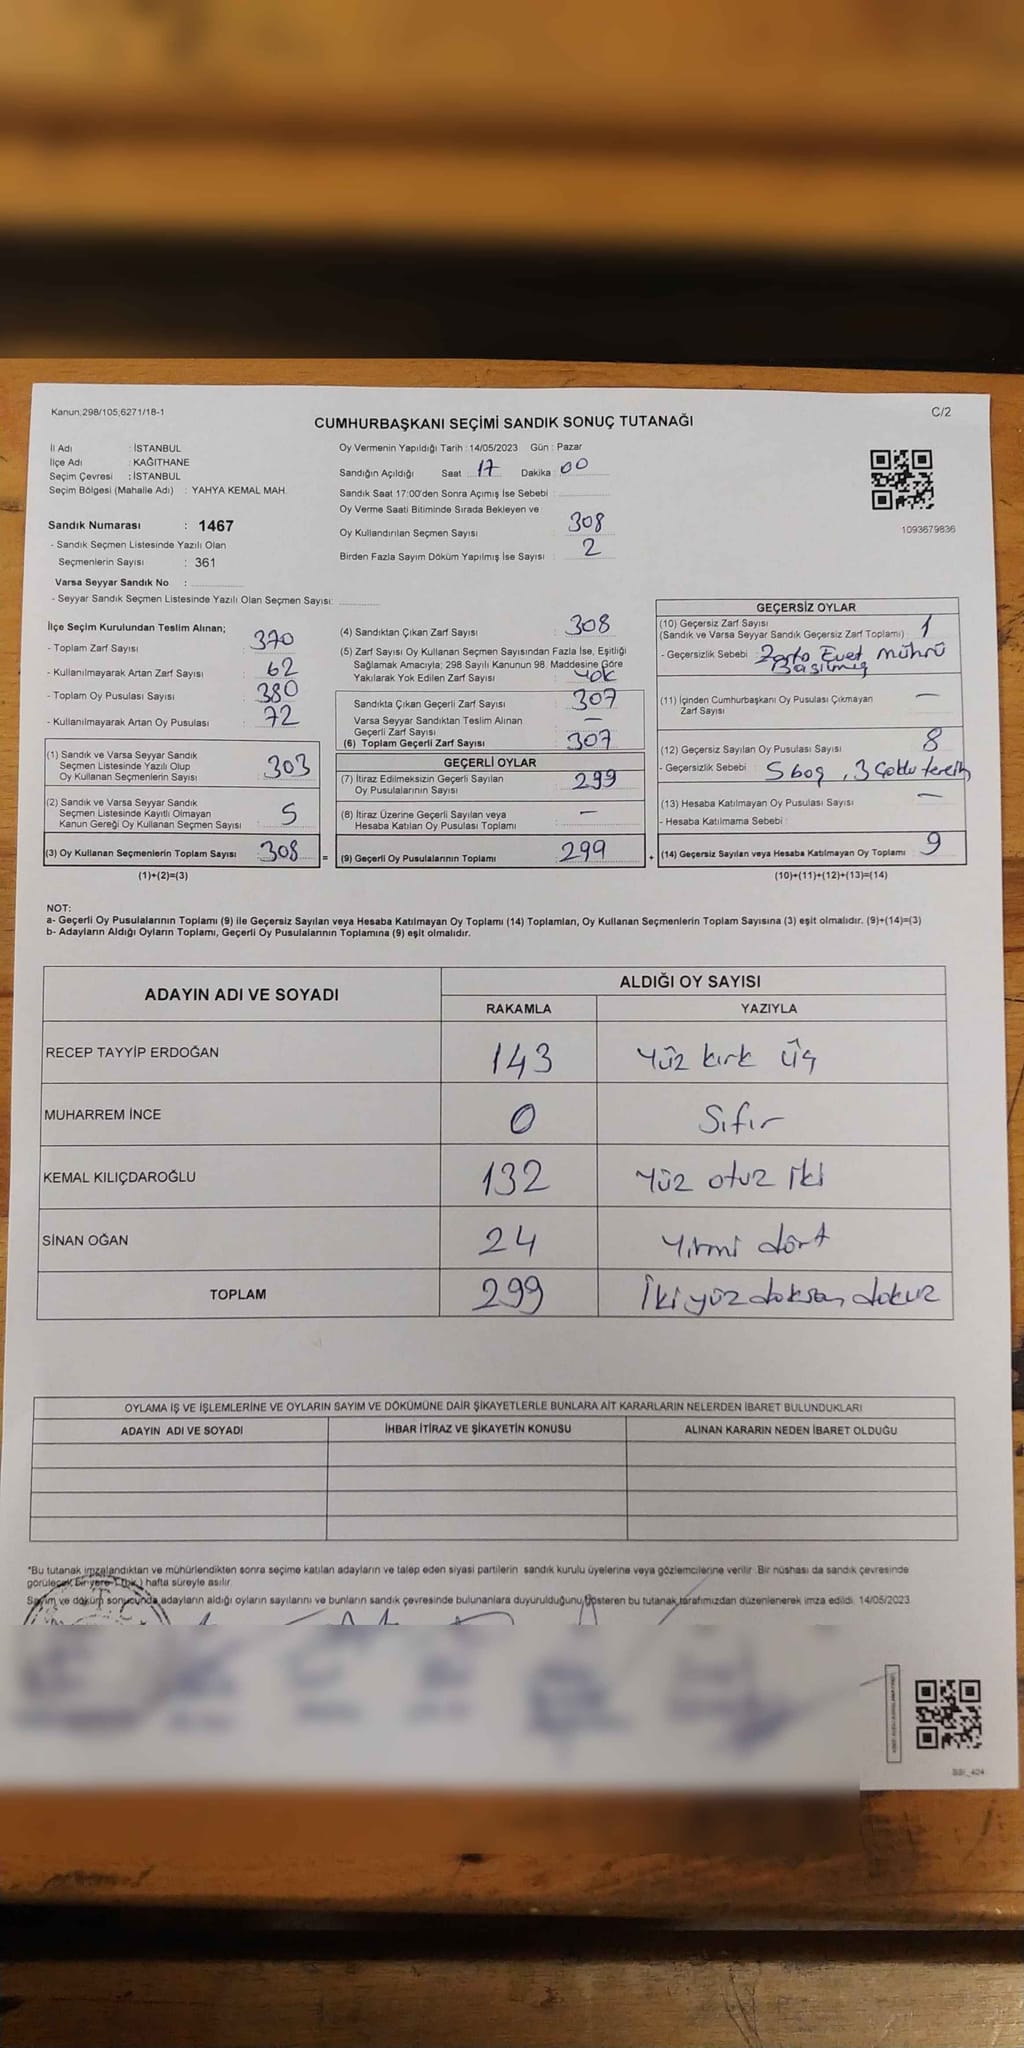 Kanun;298/105;6271/18-1
C/2
CUMHURBAŞKANI SEÇİMİ SANDIK SONUÇ TUTANAĞI
İl Adı : İSTANBUL
İlçe Adı : KAĞITHANE
Seçim Çevresi : İSTANBUL
Seçim Bölgesi (Mahalle Adı) : YAHYA KEMAL MAH.
Sandık Numarası : 1467
- Sandık Seçmen Listesinde Yazılı Olan
Seçmenlerin Sayısı : 361
Varsa Seyyar Sandık No :
- Seyyar Sandık Seçmen Listesinde Yazılı Olan Seçmen Sayısı:
Oy Vermenin Yapıldığı Tarih : 14/05/2023 Gün : Pazar
Sandığın Açıldığı Saat 17 Dakika 00
Sandık Saat 17:00'den Sonra Açımış İse Sebebi :
Oy Verme Saati Bitiminde Sırada Bekleyen ve
Oy Kullandırılan Seçmen Sayısı : 308
Birden Fazla Sayım Döküm Yapılmış İse Sayısı : 2
1093679836
İlçe Seçim Kurulundan Teslim Alınan;
- Toplam Zarf Sayısı : 370
- Kullanılmayarak Artan Zarf Sayısı : 62
- Toplam Oy Pusulası Sayısı : 380
- Kullanılmayarak Artan Oy Pusulası : 72
(1) Sandık ve Varsa Seyyar Sandık
Seçmen Listesinde Yazılı Olup
Oy Kullanan Seçmenlerin Sayısı : 303
(2) Sandık ve Varsa Seyyar Sandık
Seçmen Listesinde Kayıtlı Olmayan
Kanun Gereği Oy Kullanan Seçmen Sayısı : 5
(3) Oy Kullanan Seçmenlerin Toplam Sayısı : 308 =
(1)+(2)=(3)
(4) Sandıktan Çıkan Zarf Sayısı : 308
(5) Zarf Sayısı Oy Kullanan Seçmen Sayısından Fazla İse, Eşitliği
Sağlamak Amacıyla; 298 Sayılı Kanunun 98. Maddesine Göre
Yakılarak Yok Edilen Zarf Sayısı : Yok
Sandıkta Çıkan Geçerli Zarf Sayısı : 307
Varsa Seyyar Sandıktan Teslim Alınan
Geçerli Zarf Sayısı : —
(6) Toplam Geçerli Zarf Sayısı : 307
GEÇERLİ OYLAR
(7) İtiraz Edilmeksizin Geçerli Sayılan
Oy Pusulalarının Sayısı : 299
(8) İtiraz Üzerine Geçerli Sayılan veya
Hesaba Katılan Oy Pusulası Toplamı : —
(9) Geçerli Oy Pusulalarının Toplamı : 299 +
GEÇERSİZ OYLAR
(10) Geçersiz Zarf Sayısı
(Sandık ve Varsa Seyyar Sandık Geçersiz Zarf Toplamı) : 1
- Geçersizlik Sebebi : Zarfa Evet mührü
Basılmış
(11) İçinden Cumhurbaşkanı Oy Pusulası Çıkmayan
Zarf Sayısı : —
(12) Geçersiz Sayılan Oy Pusulası Sayısı : 8
- Geçersizlik Sebebi : 5 boş, 3 Çoklu tercih
(13) Hesaba Katılmayan Oy Pusulası Sayısı : —
- Hesaba Katılmama Sebebi :
(14) Geçersiz Sayılan veya Hesaba Katılmayan Oy Toplamı : 9
(10)+(11)+(12)+(13)=(14)
NOT:
a- Geçerli Oy Pusulalarının Toplamı (9) ile Geçersiz Sayılan veya Hesaba Katılmayan Oy Toplamı (14) Toplamları, Oy Kullanan Seçmenlerin Toplam Sayısına (3) eşit olmalıdır. (9)+(14)=(3)
b- Adayların Aldığı Oyların Toplamı, Geçerli Oy Pusulalarının Toplamına (9) eşit olmalıdır.
ADAYIN ADI VE SOYADI ALDIĞI OY SAYISI
RAKAMLA YAZIYLA
RECEP TAYYİP ERDOĞAN 143 Yüz kırk üç
MUHARREM İNCE 0 Sıfır
KEMAL KILIÇDAROĞLU 132 Yüz otuz iki
SİNAN OĞAN 24 Yirmi dört
TOPLAM 299 İki yüz doksan dokuz
OYLAMA İŞ VE İŞLEMLERİNE VE OYLARIN SAYIM VE DÖKÜMÜNE DAİR ŞİKAYETLERLE BUNLARA AİT KARARLARIN NELERDEN İBARET BULUNDUKLARI
ADAYIN ADI VE SOYADI İHBAR İTİRAZ VE ŞİKAYETİN KONUSU ALINAN KARARIN NEDEN İBARET OLDUĞU
*Bu tutanak imzalandıktan ve mühürlendikten sonra seçime katılan adayların ve talep eden siyasi partilerin sandık kurulu üyelerine veya gözlemcilerine verilir. Bir nüshası da sandık çevresinde
görülecek bir yere 1 (bir) hafta süreyle asılır.
Sayım ve döküm sonucunda adayların aldığı oyların sayılarını ve bunların sandık çevresinde bulunanlara duyurulduğunu gösteren bu tutanak tarafımızdan düzenlenerek imza edildi. 14/05/2023